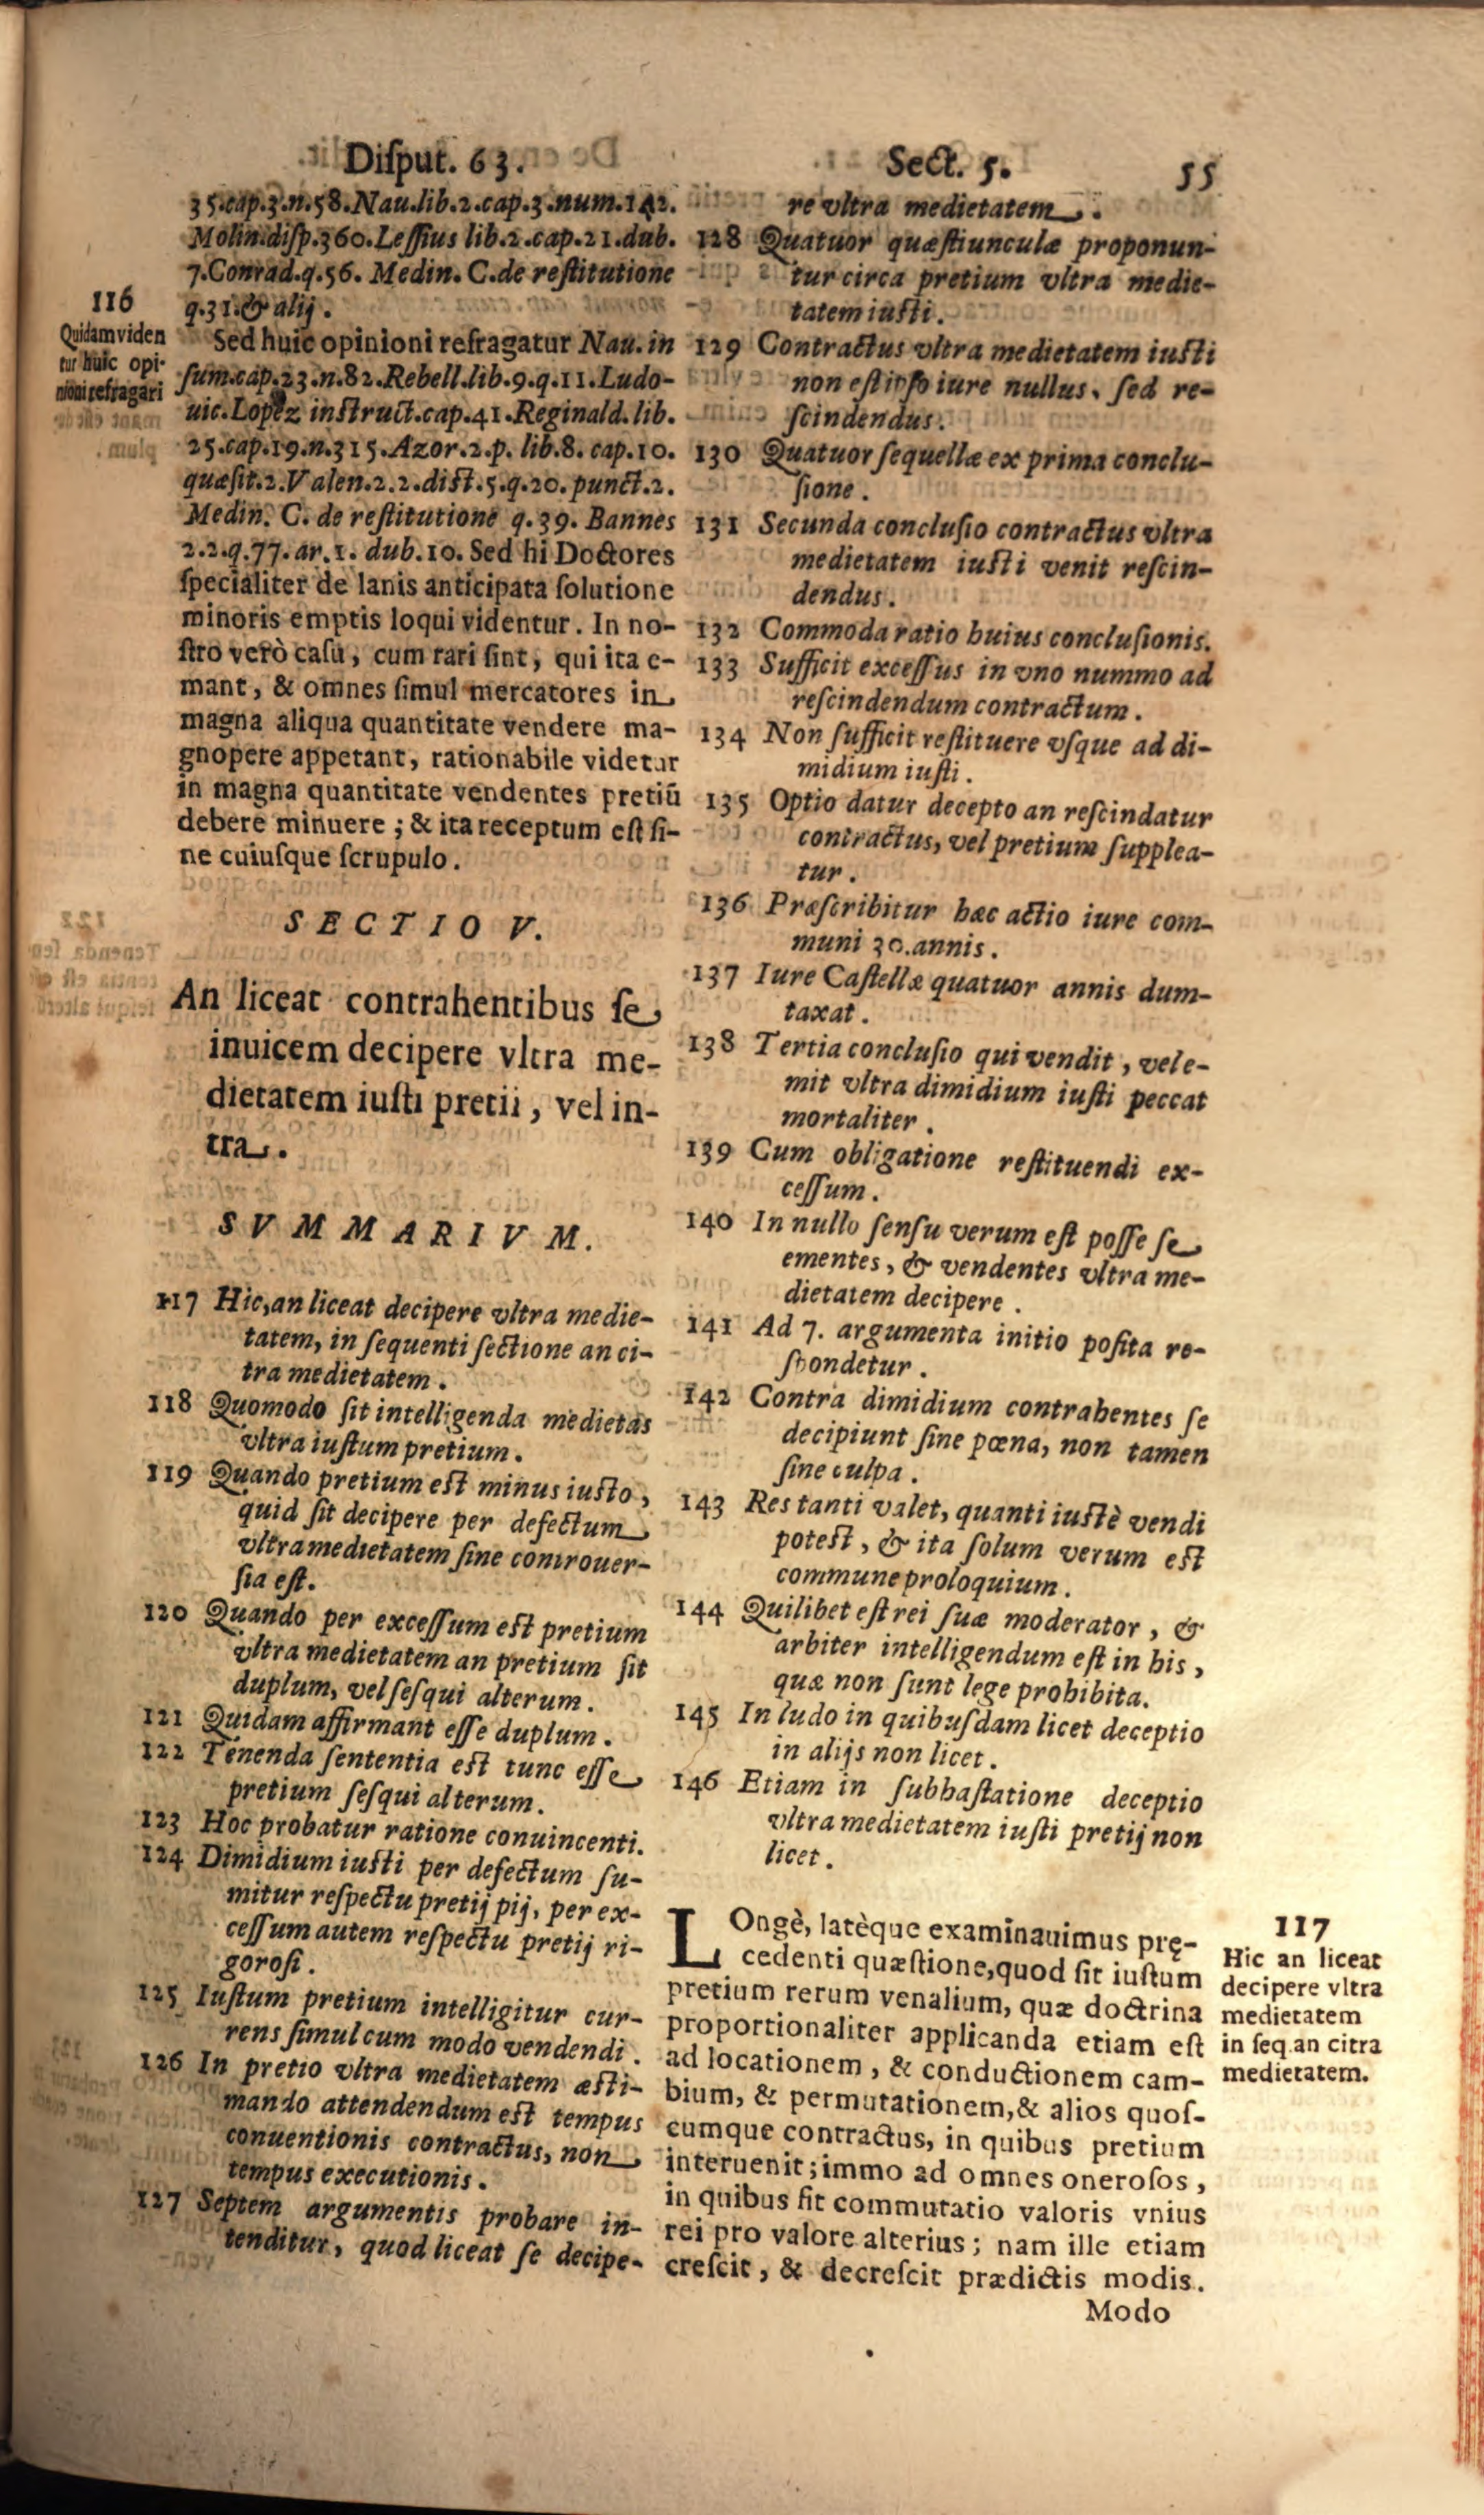 Disput. 63. Sect. 5. 55
35.cap.3.n.58.Nau.lib.2.cap.3.num.142.
Molin.disp.360.Lessius lib.2.cap.21.dub.
7.Conrad.q.56. Medin. C.de restitutione
q.31.& alij.
116
Quidam viden
tur huic opi-
nioni refragari
Sed huic opinioni refragatur Nau. in
sum.cap.23.n.82.Rebell.lib.9.q.11.Ludo-
uic.Lopez instruct.cap.41.Reginald.lib.
25.cap.19.n.315.Azor.2.p. lib.8. cap.10.
quæsit.2.Valen.2.2.dist.5.q.20.punct.2.
Medin. C. de restitutione q.39. Bannes
2.2.q.77.ar.1. dub.10. Sed hi Doctores
specialiter de lanis anticipata solutione
minoris emptis loqui videntur. In no-
stro verò casu, cum rari sint, qui ita e-
mant, & omnes simul mercatores in
magna aliqua quantitate vendere ma-
gnopere appetant, rationabile videtur
in magna quantitate vendentes pretiũ
debere minuere; & ita receptum est si-
ne cuiusque scrupulo.
SECTIO V.
An liceat contrahentibus se
inuicem decipere vltra me-
dietatem iusti pretii, vel in-
tra.
SVMMARIVM.
117 Hic,an liceat decipere vltra medie-
tatem, in sequenti sectione an ci-
tra medietatem.
118 Quomodo sit intelligenda medietas
vltra iustum pretium.
119 Quando pretium est minus iusto,
quid sit decipere per defectum
vltra medietatem sine controuer-
sia est.
120 Quando per excessum est pretium
vltra medietatem an pretium sit
duplum, vel sesqui alterum.
121 Quidam affirmant esse duplum.
122 Tenenda sententia est tunc esse
pretium sesqui alterum.
123 Hoc probatur ratione conuincenti.
124 Dimidium iusti per defectum su-
mitur respectu pretij pij, per ex-
cessum autem respectu pretij ri-
gorosi.
125 Iustum pretium intelligitur cur-
rens simul cum modo vendendi.
126 In pretio vltra medietatem æsti-
mando attendendum est tempus
conuentionis contractus, non
tempus executionis.
127 Septem argumentis probare in-
tenditur, quod liceat se decipe-
re vltra medietatem.
128 Quatuor quæstiunculæ proponun-
tur circa pretium vltra medie-
tatem iusti.
129 Contractus vltra medietatem iusti
non est ipso iure nullus, sed re-
scindendus.
130 Quatuor sequellæ ex prima conclu-
sione.
131 Secunda conclusio contractus vltra
medietatem iusti venit rescin-
dendus.
132 Commoda ratio huius conclusionis.
133 Sufficit excessus in vno nummo ad
rescindendum contractum.
134 Non sufficit restituere vsque ad di-
midium iusti.
135 Optio datur decepto an rescindatur
contractus, vel pretium supplea-
tur.
136 Præscribitur hæc actio iure com-
muni 30.annis.
137 Iure Castellæ quatuor annis dum-
taxat.
138 Tertia conclusio qui vendit, vel e-
mit vltra dimidium iusti peccat
mortaliter.
139 Cum obligatione restituendi ex-
cessum.
140 In nullo sensu verum est posse se
ementes, & vendentes vltra me-
dietatem decipere.
141 Ad 7. argumenta initio posita re-
spondetur.
142 Contra dimidium contrahentes se
decipiunt sine pœna, non tamen
sine culpa.
143 Res tanti valet, quanti iustè vendi
potest, & ita solum verum est
commune proloquium.
144 Quilibet est rei suæ moderator, &
arbiter intelligendum est in his,
quæ non sunt lege prohibita.
145 In ludo in quibusdam licet deceptio
in alijs non licet.
146 Etiam in subhastatione deceptio
vltra medietatem iusti pretij non
licet.
LOngè, latèque examinauimus prę-
cedenti quæstione,quod sit iustum
pretium rerum venalium, quæ doctrina
proportionaliter applicanda etiam est
ad locationem, & conductionem cam-
bium, & permutationem,& alios quos-
cumque contractus, in quibus pretium
interuenit; immo ad omnes onerosos,
in quibus fit commutatio valoris vnius
rei pro valore alterius; nam ille etiam
crescit, & decrescit prædictis modis.
117
Hic an liceat
decipere vltra
medietatem
in seq.an citra
medietatem.
Modo